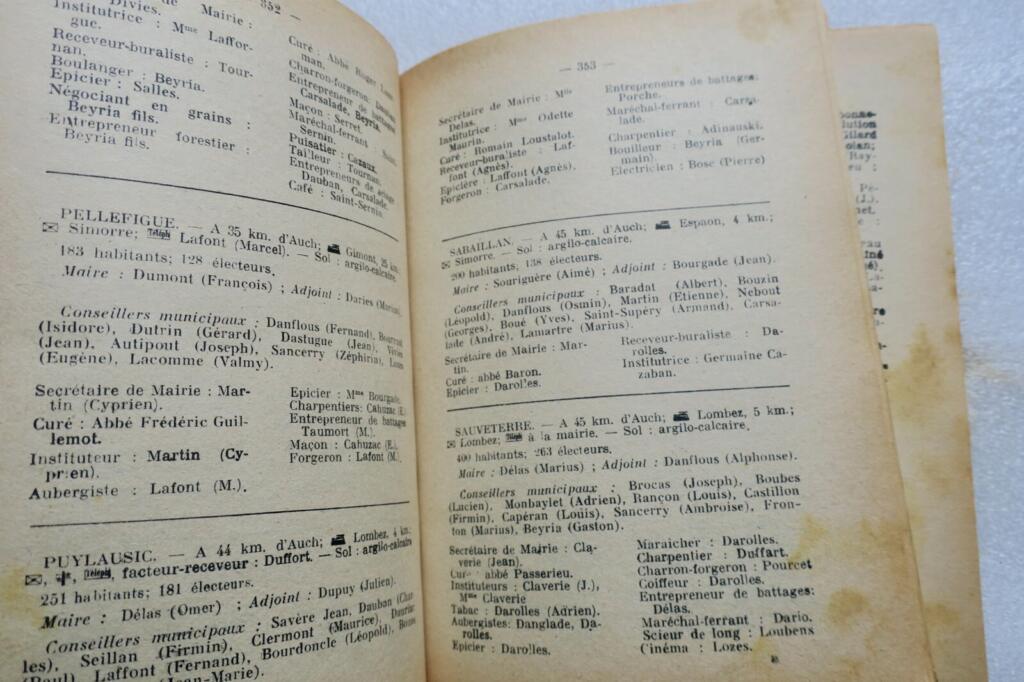 — 352 —
de Mairie :
Divies.
Institutrice : Mme Laffor-
gue.
Receveur-buraliste : Tour-
nan.
Boulanger : Beyria.
Epicier : Salles.
Négociant en grains :
Beyria fils.
Entrepreneur forestier :
Beyria fils.
Curé : Abbé Roger
man.
Charron-forgeron:
Entrepreneur de battages
Carsalade, Beyria.
Maçon : Serret.
Maréchal-ferrant : Saint-
Sernin.
Puisatier : Cazaux.
Tailleur : Tournan.
Entrepreneurs de
Dauban, Carsalade.
Café : Saint-Sernin.
PELLEFIGUE. — A 35 km. d'Auch; Gimont, 25 km.
Simorre; Téléph Lafont (Marcel). — Sol : argilo-calcaire.
183 habitants; 128 électeurs.
Maire : Dumont (François) ; Adjoint : Daries
Conseillers municipaux : Danflous (Fernand),
(Isidore), Dutrin (Gérard), Dastugue (Jean),
(Jean), Autipout (Joseph), Sancerry (Zéphirin),
(Eugène), Lacomme (Valmy).
Secrétaire de Mairie : Mar-
tin (Cyprien).
Curé : Abbé Frédéric Guil-
lemot.
Instituteur : Martin (Cy-
prien).
Aubergiste : Lafont (M.).
Epicier : Mme Bourgade.
Charpentiers: Cahuzac (E.)
Entrepreneur de battages
Taumort (M.).
Maçon : Cahuzac (E.).
Forgeron : Lafont (M.)
PUYLAUSIC. — A 44 km. d'Auch; Lombez, 4 km.;
Téléph, facteur-receveur : Duffort. — Sol : argilo-calcaire
251 habitants; 181 électeurs.
Maire : Délas (Omer) ; Adjoint : Dupuy (Julien).
Conseillers municipaux : Savère Jean, Dauban
les), Seillan (Firmin), Clermont (Maurice),
(Paul), Laffont (Fernand), Bourdoncle (Léopold),
(Jean-Marie).
— 353 —
Secrétaire de Mairie : Mlle
Delas.
Institutrice : Mme Odette
Maurin.
Curé : Romain Loustalot.
Receveur-buraliste : Laf-
font (Agnès).
Epicière : Laffont (Agnès).
Forgeron : Carsalade.
Entrepreneurs de battages:
Porche.
Maréchal-ferrant : Carsa-
lade.
Charpentier : Adinauski.
Bouilleur : Beyria (Ger-
main).
Electricien : Bosc (Pierre)
SABAILLAN. — A 45 km. d'Auch; Espaon, 4 km.;
Simorre. — Sol : argilo-calcaire.
200 habitants; 138 électeurs.
Maire : Souriguère (Aimé) ; Adjoint : Bourgade (Jean).
Conseillers municipaux : Baradat (Albert), Bouzin
(Léopold), Danflous (Osmin), Martin (Etienne), Nebout
(Georges), Boué (Yves), Saint-Supéry (Armand), Carsa-
lade (André), Lamartre (Marius).
Secrétaire de Mairie : Mar-
tin.
Curé : abbé Baron.
Epicier : Darolles.
Receveur-buraliste : Da-
rolles.
Institutrice : Germaine Ca-
zaban.
SAUVETERRE. — A 45 km. d'Auch; Lombez, 5 km.;
Lombez; Téléph à la mairie. — Sol : argilo-calcaire.
400 habitants; 263 électeurs.
Maire : Délas (Marius) ; Adjoint : Danflous (Alphonse).
Conseillers municipaux : Brocas (Joseph), Boubes
(Lucien), Monbaylet (Adrien), Rançon (Louis), Castillon
(Firmin), Capéran (Louis), Sancerry (Ambroise), Fron-
ton (Marius), Beyria (Gaston).
Secrétaire de Mairie : Cla-
verie (Jean).
Curé abbé Passerieu.
Instituteurs : Claverie (J.),
Mme Claverie
Tabac : Darolles (Adrien).
Aubergistes: Danglade, Da-
rolles.
Epicier : Darolles.
Maraicher : Darolles.
Charpentier : Duffart.
Charron-forgeron : Pourcet
Coiffeur : Darolles.
Entrepreneur de battages:
Délas.
Maréchal-ferrant : Dario.
Scieur de long : Loubens
Cinéma : Lozes.